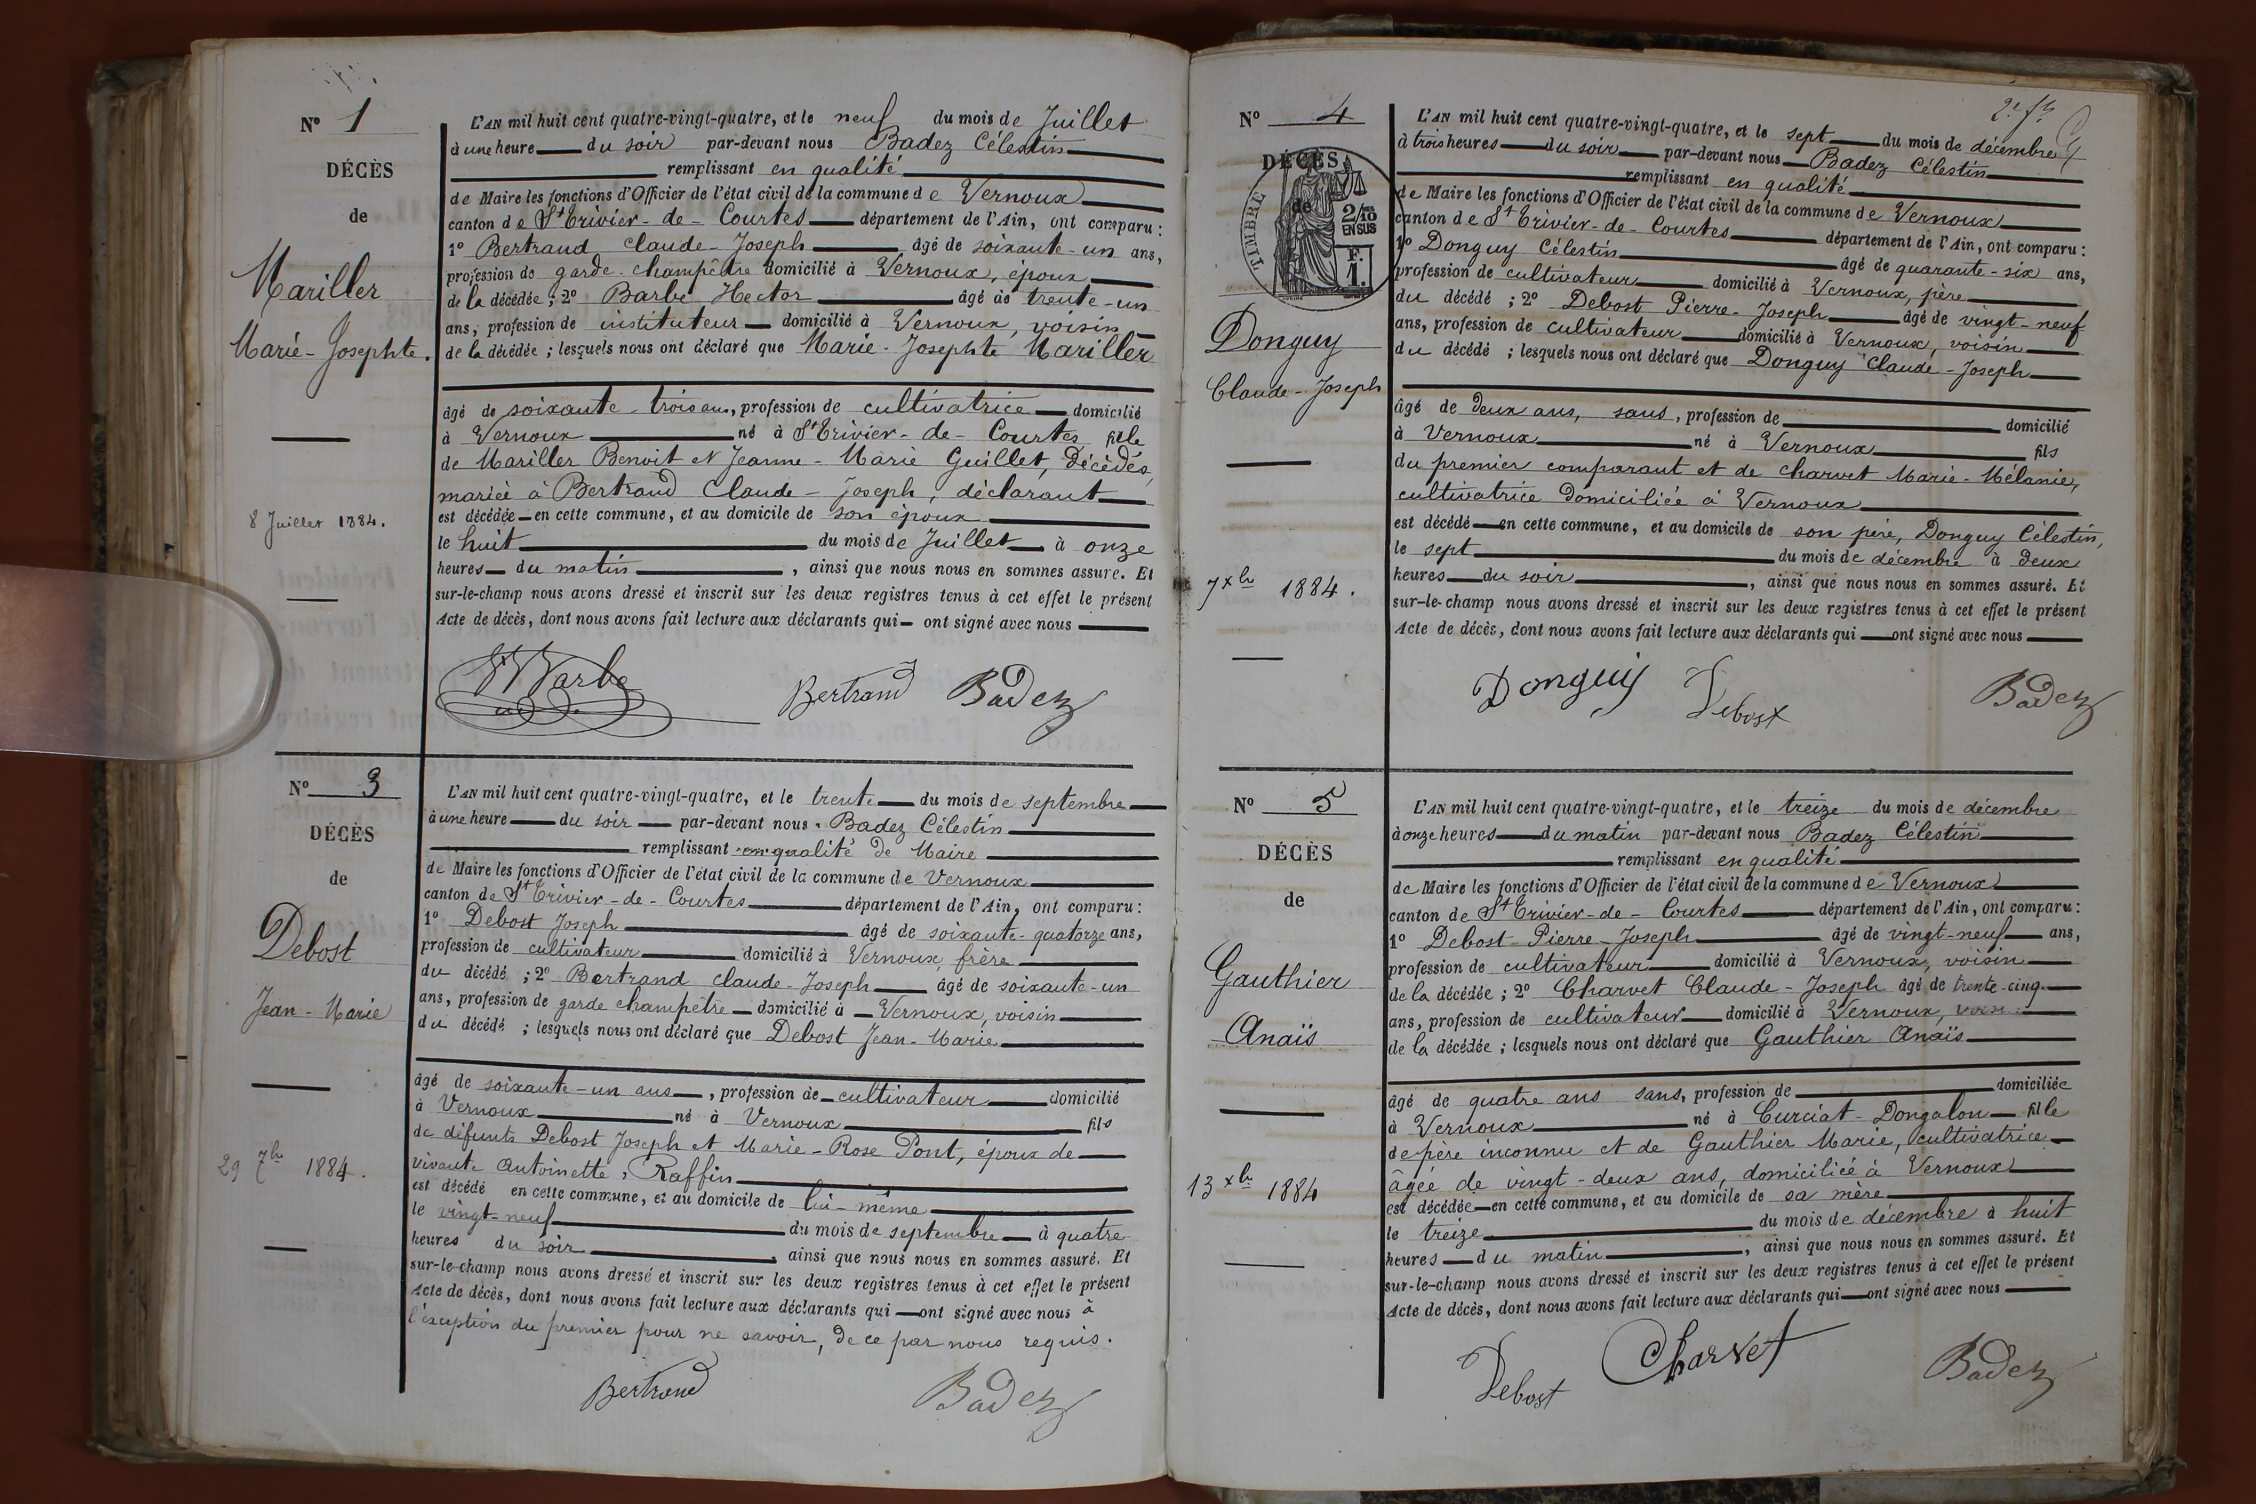 Nº 1
DÉCÈS
de
Mariller
Marie-Josephte.
8 Juillet 1884.
L'AN mil huit cent quatre-vingt-quatre, et le neuf du mois de Juillet
à une heure du soir par-devant nous Badez Célestin
remplissant en qualité
de Maire les fonctions d'Officier de l'état civil de la commune de Vernoux
canton de St Trivier-de-Courtes département de l'Ain, ont comparu :
1º Bertrand Claude-Joseph âgé de soixante-un ans,
profession de garde-champêtre domicilié à Vernoux, époux
de la décédée ; 2º Barbe Hector âgé de trente-un
ans, profession de instituteur domicilié à Vernoux, voisin
de la décédée ; lesquels nous ont déclaré que Marie-Josephte Mariller
âgé de soixante-trois ans, profession de cultivatrice domicilié
à Vernoux né à St Trivier-de-Courtes fille
de Mariller Benoit et Jeanne-Marie Guillet, décédés,
mariée à Bertrand Claude-Joseph, déclarant
est décédée en cette commune, et au domicile de son époux
le huit du mois de Juillet à onze
heures du matin, ainsi que nous nous en sommes assuré. Et
sur-le-champ nous avons dressé et inscrit sur les deux registres tenus à cet effet le présent
Acte de décès, dont nous avons fait lecture aux déclarants qui ont signé avec nous
Barbe Bertrand Badez
Nº 3
DÉCÈS
de
Debost
Jean-Marie
29 7bre 1884.
L'AN mil huit cent quatre-vingt-quatre, et le trente du mois de septembre
à une heure du soir par-devant nous Badez Célestin
remplissant en qualité de Maire
de Maire les fonctions d'Officier de l'état civil de la commune de Vernoux
canton de St Trivier-de-Courtes département de l'Ain, ont comparu :
1º Debost Joseph âgé de soixante-quatorze ans,
profession de cultivateur domicilié à Vernoux, frère
du décédé ; 2º Bertrand Claude-Joseph âgé de soixante-un
ans, profession de garde champêtre domicilié à Vernoux, voisin
du décédé ; lesquels nous ont déclaré que Debost Jean-Marie
âgé de soixante-un ans, profession de cultivateur domicilié
à Vernoux né à Vernoux fils
de défunts Debost Joseph et Marie-Rose Pont, époux de
vivante Antoinette Raffin
est décédé en cette commune, et au domicile de lui-même
le vingt-neuf du mois de septembre à quatre
heures du soir, ainsi que nous nous en sommes assuré. Et
sur-le-champ nous avons dressé et inscrit sur les deux registres tenus à cet effet le présent
Acte de décès, dont nous avons fait lecture aux déclarants qui ont signé avec nous à
l'exception du premier pour ne savoir, de ce par nous requis.
Bertrand Badez
2e ft
Nº 4
DÉCÈS
de
TIMBRE
2/10 EN SUS
F. 1.
Donguy
Claude-Joseph
7 xbre 1884.
L'AN mil huit cent quatre-vingt-quatre, et le sept du mois de décembre
à trois heures du soir par-devant nous Badez Célestin
remplissant en qualité
de Maire les fonctions d'Officier de l'état civil de la commune de Vernoux
canton de St Trivier-de-Courtes département de l'Ain, ont comparu :
1º Donguy Célestin âgé de quarante-six ans,
profession de cultivateur domicilié à Vernoux, père
du décédé ; 2º Debost Pierre-Joseph âgé de vingt-neuf
ans, profession de cultivateur domicilié à Vernoux, voisin
du décédé ; lesquels nous ont déclaré que Donguy Claude-Joseph
âgé de deux ans, sans, profession de domicilié
à Vernoux né à Vernoux fils
du premier comparant et de Charvet Marie-Mélanie,
cultivatrice domiciliée à Vernoux
est décédé en cette commune, et au domicile de son père, Donguy Célestin,
le sept du mois de décembre à deux
heures du soir, ainsi que nous nous en sommes assuré. Et
sur-le-champ nous avons dressé et inscrit sur les deux registres tenus à cet effet le présent
Acte de décès, dont nous avons fait lecture aux déclarants qui ont signé avec nous
Donguy Debost Badez
Nº 5
DÉCÈS
de
Gauthier
Anaïs
13 xbre 1884
L'AN mil huit cent quatre-vingt-quatre, et le treize du mois de décembre
à onze heures du matin par-devant nous Badez Célestin
remplissant en qualité
de Maire les fonctions d'Officier de l'état civil de la commune de Vernoux
canton de St Trivier-de-Courtes département de l'Ain, ont comparu :
1º Debost Pierre-Joseph âgé de vingt-neuf ans,
profession de cultivateur domicilié à Vernoux, voisin
de la décédée ; 2º Charvet Claude-Joseph âgé de trente-cinq
ans, profession de cultivateur domicilié à Vernoux, voisin
de la décédée ; lesquels nous ont déclaré que Gauthier Anaïs
âgé de quatre ans sans, profession de domiciliée
à Vernoux né à Curciat-Dongalon fille
de père inconnu et de Gauthier Marie, cultivatrice
âgée de vingt-deux ans, domiciliée à Vernoux
est décédée en cette commune, et au domicile de sa mère
le treize du mois de décembre à huit
heures du matin, ainsi que nous nous en sommes assuré. Et
sur-le-champ nous avons dressé et inscrit sur les deux registres tenus à cet effet le présent
Acte de décès, dont nous avons fait lecture aux déclarants qui ont signé avec nous
Debost Charvet Badez